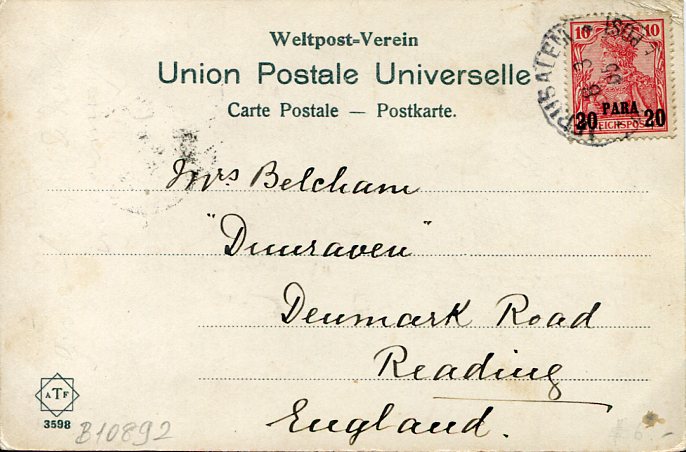 Weltpost-Verein
Union Postale Universelle
Carte Postale — Postkarte.
10 10
PARA
20 20
REICHSPOST
JERUSALEM
8 3
Mrs Belcham
"Dunraven"
Denmark Road
Reading
England.
ATF
3598
B10892